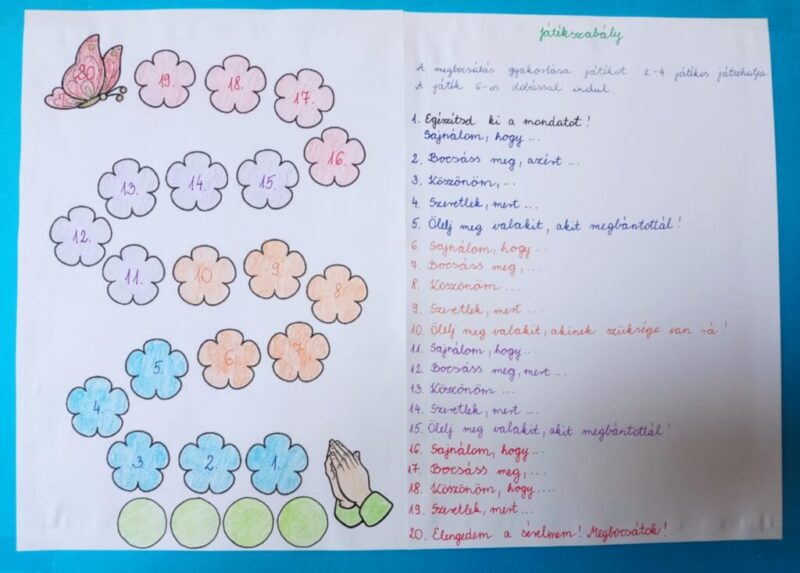 20
19.
18.
17.
16.
13.
14.
15.
12.
11.
10.
9.
8.
5.
6.
7.
4.
3.
2.
1.
Játékszabály
A megbocsátás gyakorlása játékot 2-4 játékos játszhatja.
A játék 6-os dobással indul.
1. Egészítsd ki a mondatot!
Sajnálom, hogy ...
2. Bocsáss meg, azért ...
3. Köszönöm, ...
4. Szeretlek, mert ...
5. Ölelj meg valakit, akit megbántottál!
6. Sajnálom, hogy ...
7. Bocsáss meg, ...
8. Köszönöm ...
9. Szeretlek, mert ...
10. Ölelj meg valakit, akinek szüksége van rá!
11. Sajnálom, hogy ...
12. Bocsáss meg, mert ...
13. Köszönöm ...
14. Szeretlek, mert ...
15. Ölelj meg valakit, akit megbántottál!
16. Sajnálom, hogy ...
17. Bocsáss meg, ...
18. Köszönöm, hogy ....
19. Szeretlek, mert ...
20. Elengedem a sérelmem! Megbocsátok!